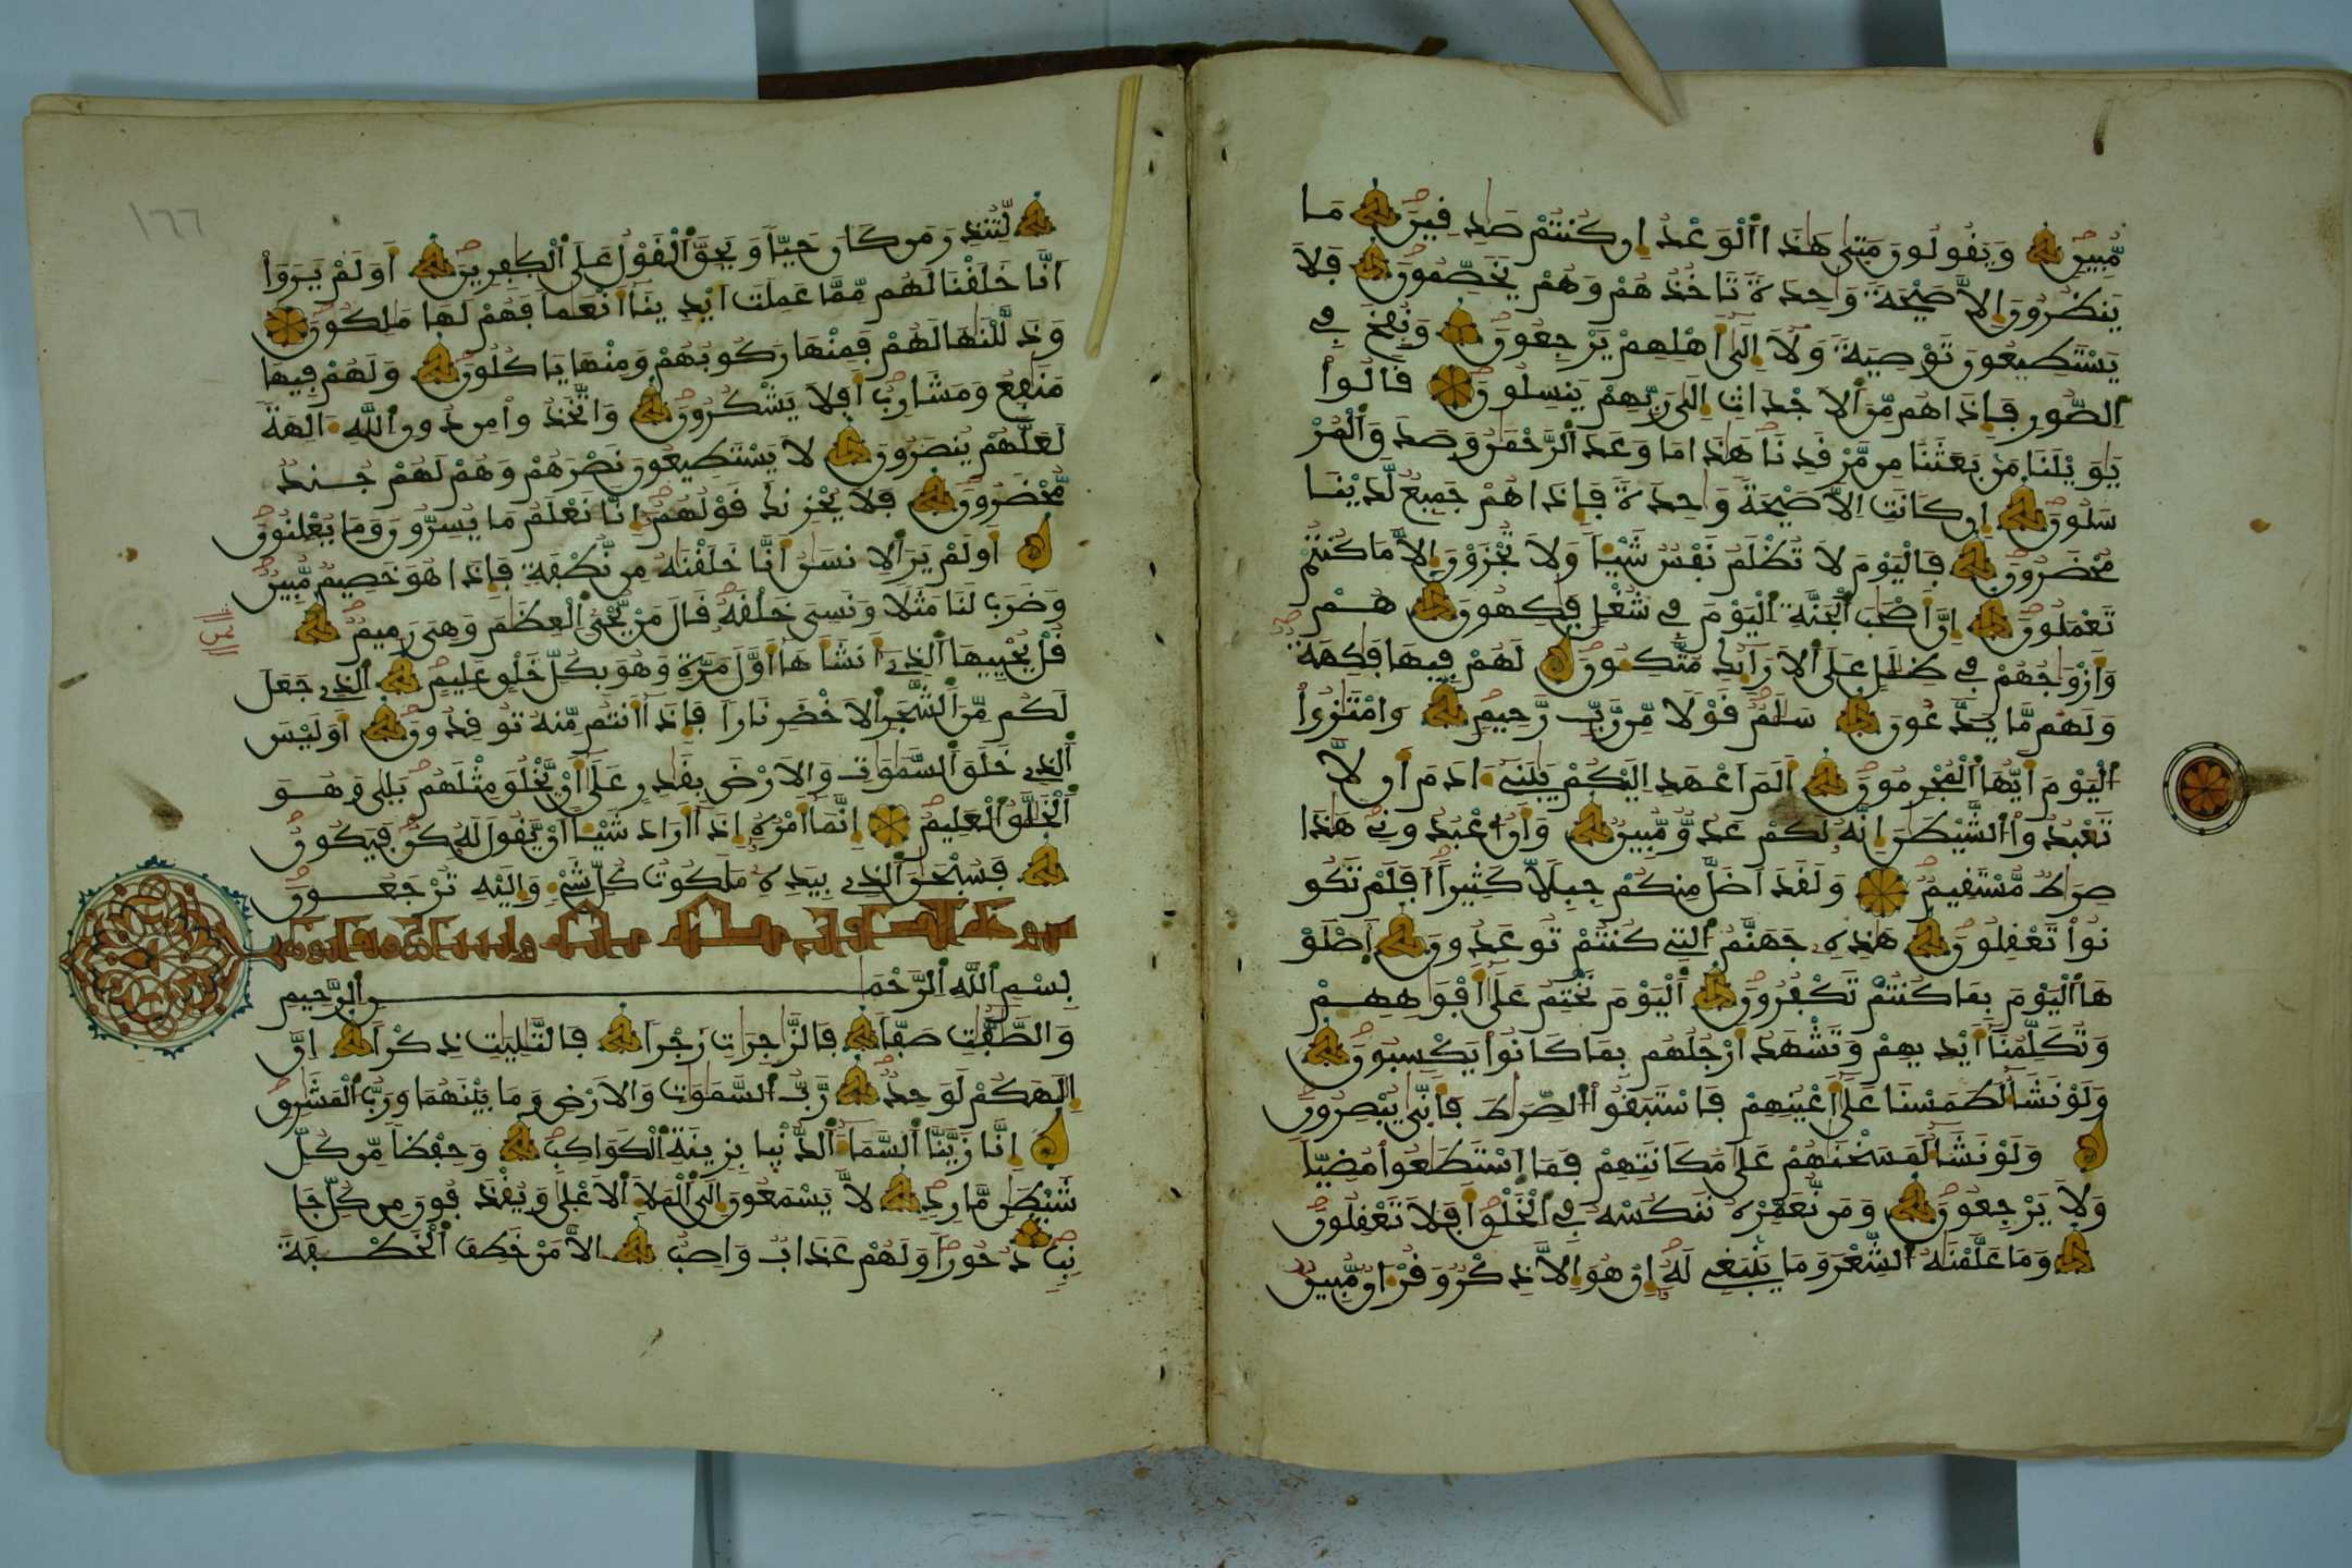 مُّبِينٍ وَيَقُولُونَ مَتَىٰ هَٰذَا اَ۬لْوَعْدُ إِن كُنتُمْ صَٰدِقِينَ مَا
يَنظُرُونَ إِلَّا صَيْحَةً وَٰحِدَةً تَاخُذُهُمْ وَهُمْ يَخَصِّمُونَ فَلَا
يَسْتَطِيعُونَ تَوْصِيَةً وَلَا إِلَىٰ أَهْلِهِمْ يَرْجِعُونَ وَنُفِخَ فِے
اِ۬لصُّورِ فَإِذَا هُم مِّنَ اَ۬لَاجْدَاثِ إِلَىٰ رَبِّهِمْ يَنسِلُونَ قَالُواْ
يَٰوَيْلَنَا مَنۢ بَعَثَنَا مِن مَّرْقَدِنَا هَٰذَا مَا وَعَدَ اَ۬لرَّحْمَٰنُ وَصَدَقَ اَ۬لْمُرْ
سَلُونَ إِن كَانَتِ اِلَّا صَيْحَةً وَٰحِدَةً فَإِذَا هُمْ جَمِيعٌ لَّدَيْنَا
مُحْضَرُونَ فَالْيَوْمَ لَا تُظْلَمُ نَفْسٌ شَيْـٔاً وَلَا تُجْزَوْنَ إِلَّا مَا كُنتُمْ
تَعْمَلُونَ إِنَّ أَصْحَٰبَ اَ۬لْجَنَّةِ اِ۬لْيَوْمَ فِے شُغْلٍ فَٰكِهُونَ هُمْ
وَأَزْوَٰجُهُمْ فِے ظِلَٰلٍ عَلَى اَ۬لَارَآئِكِ مُتَّكِـُٔونَ لَهُمْ فِيهَا فَٰكِهَةٌ
وَلَهُم مَّا يَدَّعُونَ سَلَٰمٌ قَوْلًا مِّن رَّبٍّ رَّحِيمٍ وَامْتَٰزُواْ
اُ۬لْيَوْمَ أَيُّهَا اَ۬لْمُجْرِمُونَ أَلَمَ اَعْهَدِ اِلَيْكُمْ يَٰبَنِےٓ ءَادَمَ أَن لَّا
تَعْبُدُواْ اُ۬لشَّيْطَٰنَ إِنَّهُۥ لَكُمْ عَدُوٌّ مُّبِينٌ وَأَنُ اُ۟عْبُدُونِے هَٰذَا
صِرَٰطٌ مُّسْتَقِيمٌ وَلَقَدَ اَضَلَّ مِنكُمْ جِبِلّاً كَثِيراً أَفَلَمْ تَكُو
نُواْ تَعْقِلُونَ هَٰذِهِۦ جَهَنَّمُ اُ۬لتِے كُنتُمْ تُوعَدُونَ اَ۪صْلَوْ
هَا اَ۬لْيَوْمَ بِمَا كُنتُمْ تَكْفُرُونَ اَ۬لْيَوْمَ نَخْتِمُ عَلَىٰ أَفْوَٰهِهِمْ
وَتُكَلِّمُنَا أَيْدِيهِمْ وَتَشْهَدُ أَرْجُلُهُم بِمَا كَانُواْ يَكْسِبُونَ
وَلَوْ نَشَآءُ لَطَمَسْنَا عَلَىٰ أَعْيُنِهِمْ فَاسْتَبَقُواْ اُ۬لصِّرَٰطَ فَأَنّٰي يُبْصِرُونَ
وَلَوْ نَشَآءُ لَمَسَخْنَٰهُمْ عَلَىٰ مَكَانَتِهِمْ فَمَا اَ۪سْتَطَٰعُواْ مُضِيّاً
وَلَا يَرْجِعُونَ وَمَن نُّعَمِّرْهُ نَنكُسْهُ فِے اِ۬لْخَلْقِ أَفَلَا تَعْقِلُونَ
وَمَا عَلَّمْنَٰهُ اُ۬لشِّعْرَ وَمَا يَنۢبَغِے لَهُۥٓ إِنْ هُوَ إِلَّا ذِكْرٌ وَقُرْءَانٌ مُّبِينٌ
لِّتُنذِرَ مَن كَانَ حَيّاً وَيَحِقَّ اَ۬لْقَوْلُ عَلَى اَ۬لْكٰفِرِينَ أَوَلَمْ يَرَوَاْ
اَنَّا خَلَقْنَا لَهُم مِّمَّا عَمِلَتَ اَيْدِينَا أَنْعَٰماً فَهُمْ لَهَا مَٰلِكُونَ
وَذَلَّلْنَٰهَا لَهُمْ فَمِنْهَا رَكُوبُهُمْ وَمِنْهَا يَاكُلُونَ وَلَهُمْ فِيهَا
مَنَٰفِعُ وَمَشَارِبُ أَفَلَا يَشْكُرُونَ وَاتَّخَذُواْ مِن دُونِ اِ۬للَّهِ ءَالِهَةً
لَّعَلَّهُمْ يُنصَرُونَ لَا يَسْتَطِيعُونَ نَصْرَهُمْ وَهُمْ لَهُمْ جُندٌ
مُّحْضَرُونَ فَلَا يُحْزِنكَ قَوْلُهُمُۥٓ إِنَّا نَعْلَمُ مَا يُسِرُّونَ وَمَا يُعْلِنُونَ
أَوَلَمْ يَرَ اَ۬لِانسَٰنُ أَنَّا خَلَقْنَٰهُ مِن نُّطْفَةٍ فَإِذَا هُوَ خَصِيمٌ مُّبِينٌ
وَضَرَبَ لَنَا مَثَلًا وَنَسِيَ خَلْقَهُۥ قَالَ مَنْ يُّحْيِ اِ۬لْعِظَٰمَ وَهِيَ رَمِيمٌ
قُلْ يُحْيِيهَا اَ۬لذِےٓ أَنشَأَهَا أَوَّلَ مَرَّةٍ وَهُوَ بِكُلِّ خَلْقٍ عَلِيمٌ اِ۬لذِے جَعَلَ
لَكُم مِّنَ اَ۬لشَّجَرِ اِ۬لَاخْضَرِ نَاراً فَإِذَا أَنتُم مِّنْهُ تُوقِدُونَ أَوَلَيْسَ
اَ۬لذِے خَلَقَ اَ۬لسَّمَٰوَٰتِ وَالَارْضَ بِقَٰدِرٍ عَلَىٰ أَنْ يَّخْلُقَ مِثْلَهُم بَلَىٰ وَهُوَ
اَ۬لْخَلَّٰقُ اُ۬لْعَلِيمُ إِنَّمَا أَمْرُهُۥٓ إِذَا أَرَادَ شَيْـٔاً اَنْ يَّقُولَ لَهُۥ كُن فَيَكُونُ
فَسُبْحَٰنَ اَ۬لذِے بِيَدِهِۦ مَلَكُوتُ كُلِّ شَےْءٍ وَإِلَيْهِ تُرْجَعُونَ
بِسْمِ اِ۬للَّهِ اِ۬لرَّحْمَٰنِ اِ۬لرَّحِيمِ
وَالصَّٰٓفَّٰتِ صَفّاً فَالزَّٰجِرَٰتِ زَجْراً فَالتَّٰلِيَٰتِ ذِكْراً إِنَّ
إِلَٰهَكُمْ لَوَٰحِدٌ رَّبُّ اُ۬لسَّمَٰوَٰتِ وَالَارْضِ وَمَا بَيْنَهُمَا وَرَبُّ اُ۬لْمَشَٰرِقِ
إِنَّا زَيَّنَّا اَ۬لسَّمَآءَ اَ۬لدُّنْيَا بِزِينَةِ اِ۬لْكَوَاكِبِ وَحِفْظاً مِّن كُلِّ
شَيْطَٰنٍ مَّارِدٍ لَّا يَسْمَعُونَ إِلَى اَ۬لْمَلَإِ اِ۬لَاعْلَىٰ وَيُقْذَفُونَ مِن كُلِّ جَا
نِبٍ دُحُوراً وَلَهُمْ عَذَابٌ وَاصِبٌ اِلَّا مَنْ خَطِفَ اَ۬لْخَطْفَةَ